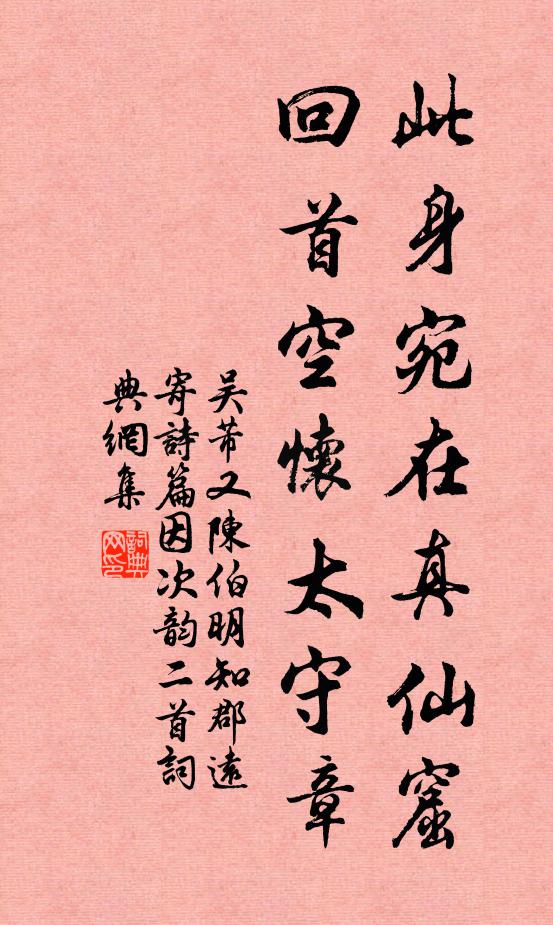 此身宛在真仙窟
回首空懷太守章
吴芾又陳伯明知郡遠
寄詩篇因次韵二首詞
典網集
詞典
网印